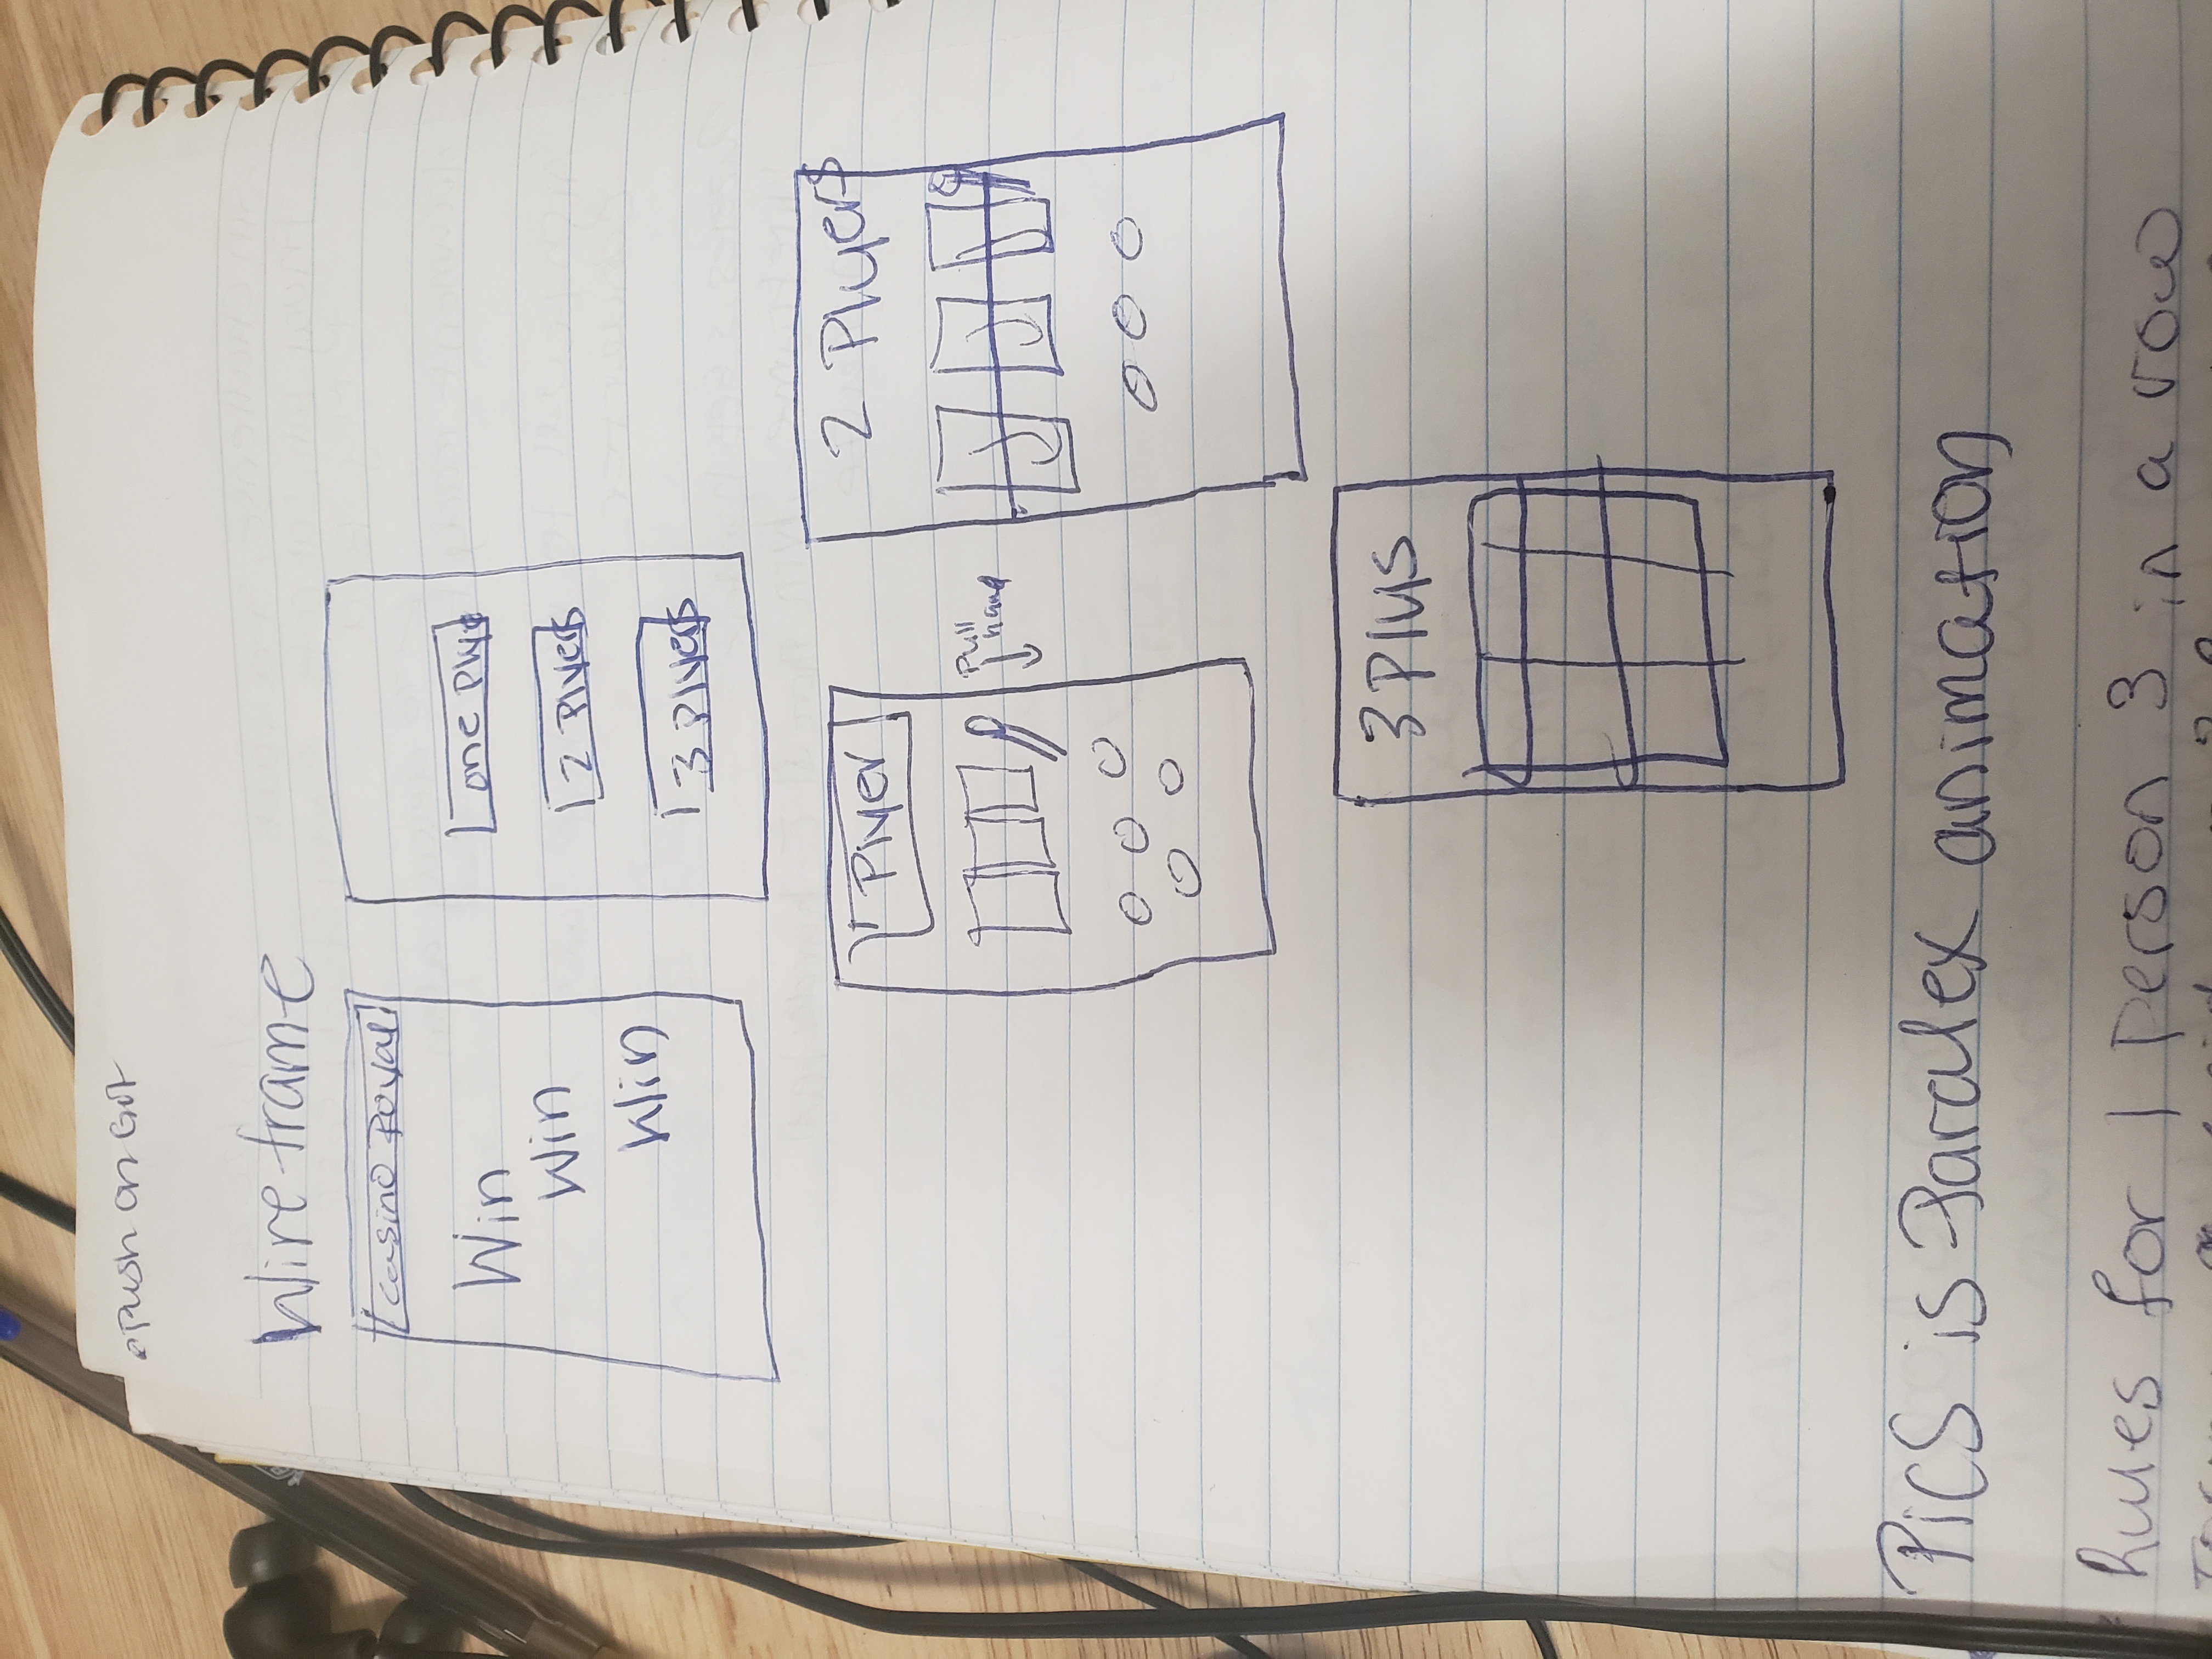 • Push on Git
Wireframe
Casino Royal
Win
Win
Win
one Plyr
2 Plyers
3 Plyers
1 Plyer
Pull
hand
2 Plyers
3 Plus
Pics is Paralex animation
Rules for 1 person 3 in a row